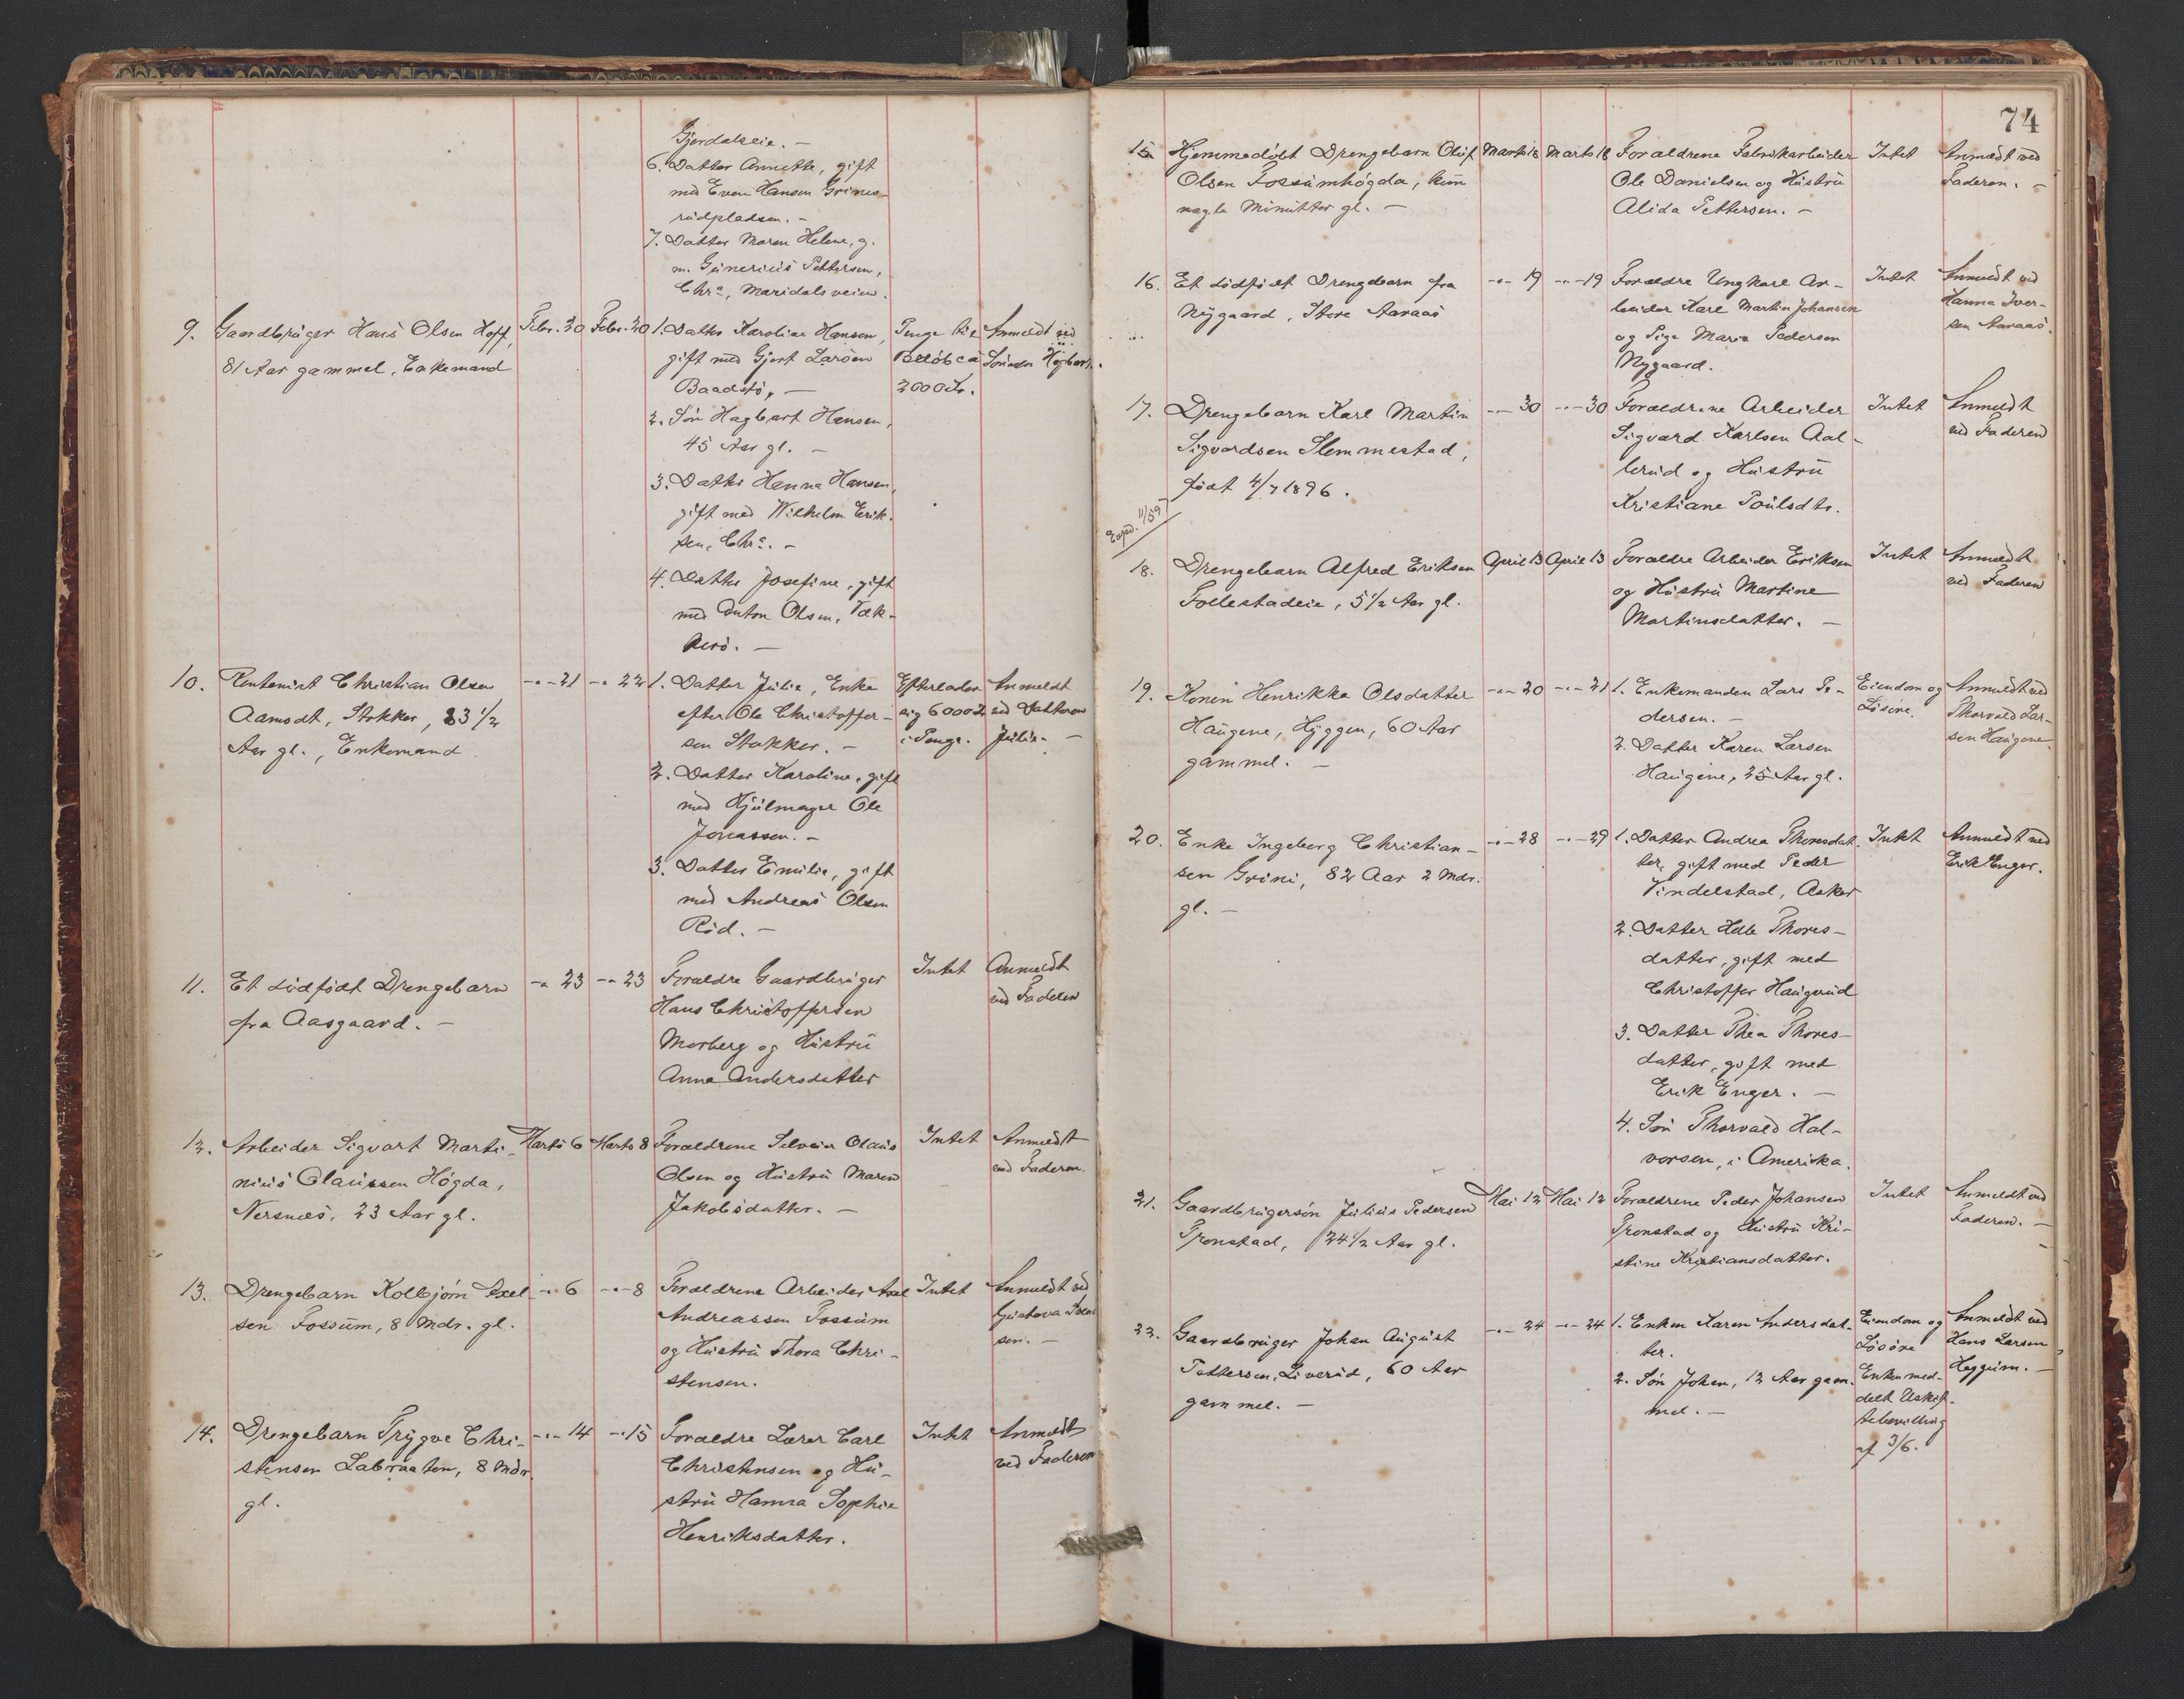 Gjerdalseie. -
6. Datter Annette, gift
med Even Hansen Grines-
rudpladsen. -
7. Datter Maren Helene, g.
m. Gunerius Pettersen,
Chr.a, Maridalsveien.
9. Gaardbruger Hans Olsen Hoff, Febr. 20 Febr. 20 1. Datter Karoline Hansen, Penge Anmeldt ved
81 Aar gammel, Enkemand gift med Gjert Larsen Beløb ca Sønnen Hagbart.
Baadstø, - 2000 Kr.
2. Søn Hagbart Hansen,
45 Aar gl. -
3. Datter Hanna Hansen,
gift med Wilhelm Erik-
sen, Chr.a. -
4. Datter Josefine, gift
med Anton Olsen, Væk-
kerø. -
10. Rentenist Christian Olsen -"- 21 -"- 22 1. Datter Julie, Enke Efterlader Anmeldt
Aamodt, Stokker, 83 1/2 efter Ole Christoffer- sig 6000 Kr ved Datteren
Aar gl., Enkemand sen Stokker. - i Penge. Julie. -
2. Datter Karoline, gift
med Hjulmager Ole
Jonassen. -
3. Datter Emilie, gift
med Andreas Olsen
Rød. -
11. Et dødfødt Drengebarn -"- 23 -"- 23 Forældre Gaardbruger Intet Anmeldt
fra Aasgaard. - Hans Christoffersen ved Faderen
Morberg og Hustru
Anna Andersdatter
12. Arbeider Sigvart Marti- Marts 6 Marts 8 Forældrene Selveier Olaus Intet Anmeldt
nius Olaussen Høgda, Olsen og Hustru Maren ved Faderen.
Nersnæs, 23 Aar gl. Jakobsdatter. -
13. Drengebarn Kolbjørn Axel- -"- 6 -"- 8 Forældrene Arbeider Axel Intet Anmeldt ved
sen Fossum, 8 Mdr. gl. Andreassen Fossum Gustava
og Hustru Thora Chri- sen. -
stensen.
14. Drengebarn Trygve Chri- -"- 14 -"- 15 Forældre Lærer Carl Intet Anmeldt
stensen Labraaten, 8 Mdr. Christensen og Hu- ved Faderen
gl. stru Hanna Sophie
Henriksdatter.
74
15. Hjemmedøbt Drengebarn Oluf Marts 18 Marts 18 Forældrene Fabrikarbeider Intet Anmeldt ved
Olsen Fossumhøgda, kun Ole Danielsen og Hustru Faderen. -
nogle Minutter gl. - Alida Pettersen. -
16. Et dødfødt Drengebarn fra -"- 19 -"- 19 Forældre Ungkarl Ar- Intet Anmeldt ved
Nygaard, Store Aaraas beider Karl Martin Johansen Hanna Iver-
og Pige Maria Pedersen sen Aaraas.
Nygaard.
17. Drengebarn Karl Martin -"- 30 -"- 30 Forældrene Arbeider Intet Anmeldt
Sigvardsen Slemmestad, Sigvard Karlsen Aal- ved Faderen
født 4/7 1896. berud og Hustru
Kristiane Poulsdtr.
Exped. 11/5 97
18. Drengebarn Alfred Eriksen April 13 April 13 Forældre Arbeider Eriksen Intet Anmeldt
Follestadeie, 5 1/2 Aar gl. og Hustru Martine ved Faderen
Martinsdatter. -
19. Konen Henrikke Olsdatter -"- 20 -"- 21 1. Enkemanden Lars Pe- Eiendom og Anmeldt ved
Haugene, Hyggen, 60 Aar dersen. - Løsøre. Thorvald Lar-
gammel. - 2. Datter Karen Larsen sen Haugene.
Haugene, 25 Aar gl.
20. Enke Ingeborg Christian- -"- 28 -"- 29 1. Datter Andrea Thoresdat- Intet Anmeldt ved
sen Grini, 82 Aar 2 Mdr. ter, gift med Peder Erik Enger.
gl. - Vindelstad, Asker
2. Datter Helle Thores-
datter, gift med
Christoffer Haugerud
3. Datter Thea Thores-
datter, gift med
Erik Enger. -
4. Søn Thorvald Hal-
vorsen, i Amerika.
21. Gaardbrugersøn Julius Pedersen Mai 12 Mai 12 Forældrene Peder Johansen Intet Anmeldt ved
Tronstad, 24 1/2 Aar gl. Tronstad og Hustru Kri- Faderen. -
stine Kristiansdatter.
22. Gaardbruger Johan August -"- 24 -"- 24 1. Enken Karen Andersdat- Eiendom og Anmeldt ved
Pettersen, Liverud, 60 Aar ter. Løsøre Hans Larsen
gammel. - 2. Søn Johan, 12 Aar gam- Enken med- Heggum. -
mel. - delt Uskif-
tebevilling
af 3/6.